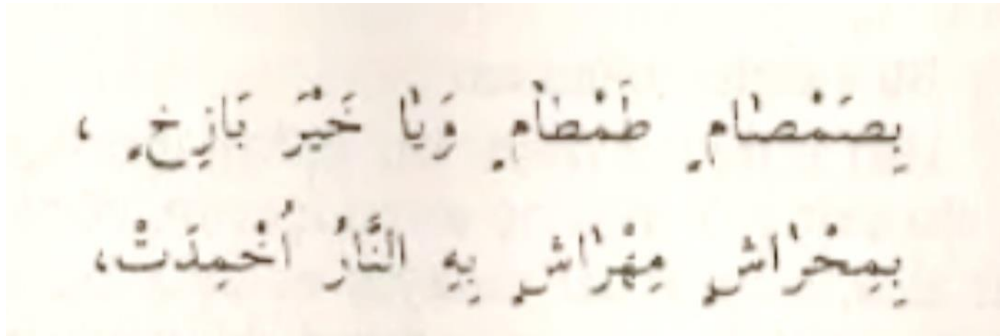 بِصَمْصَامٍ طَمْطَامٍ وَيَا خَيْرَ بَازِخٍ ،
بِمِحْرَاشٍ مِهْرَاشٍ بِهِ النَّارُ أُخْمِدَتْ،